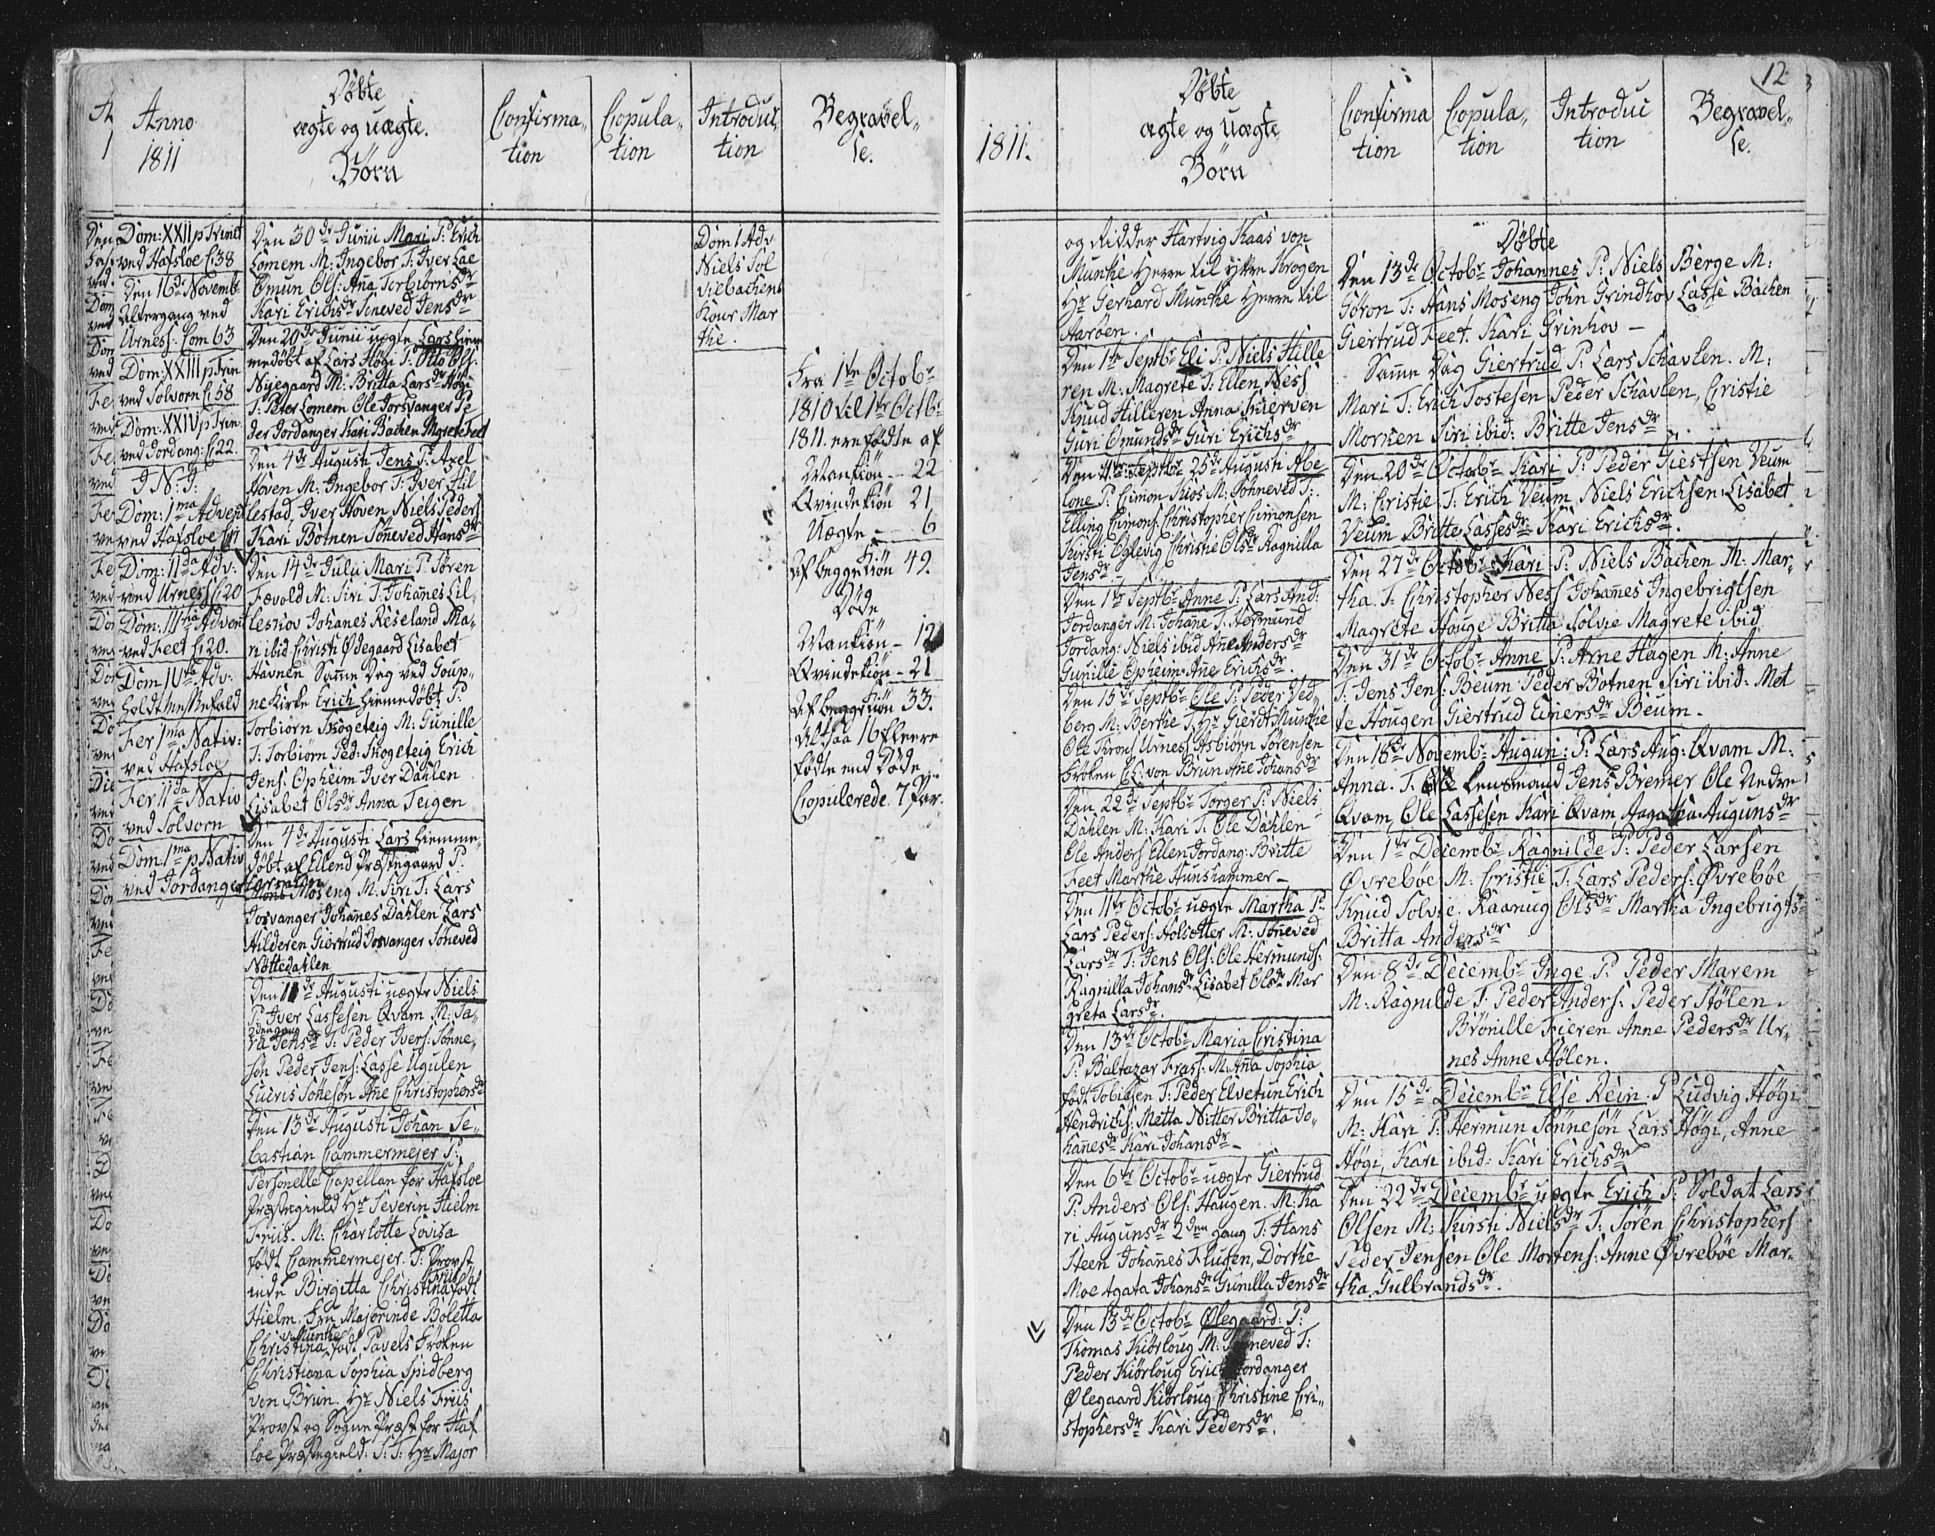 Anno
1811
Døbte
ægte og uægte.
Børn
Confirma,
tion
Copula,
tion
Introduc,
tion
Begravel,
se.
Dom: XXII p Trinit
ved Hafsloe C: 38
Den 16de Novembr
Altergang ved
Urness. Com 63
Dom: XXIII p Trin
ved Solvorn C: 58
Dom: XXIV p Trin
ved Jordang: C: 22.
I. N: I:
Dom: 1ma Advent
ved Hafsloe
Dom: 11da Adv:
ved Urness C: 20
Dom: 111tia Advent
ved Feet C: 20.
Dom IVta Adv:
holdt Messefald
Fer 1ma Nativ:
ved Hafsloe
Fer 11da Nativ
ved Solvorn
Dom: 1ma p Nativ
ved Jordanger
Den 30de Junii Mari P: Erich
Lomem M: Ingebor T: Iver Lae
Omun Ols: Ana Torbiörnsdr
Kari Erichsdr Söneved Jensdr
Den 20de Junii uægte Lars hiem
medöbt af Lars Högi P: Otto Ols:
Nyegaard M: Britta Larsdr Högi
T: Peter Lomem Ole Josvanger Pe
der Jordanger Kari Bachen Mgrete Feet
Den 4de Augusti Jens P: Axel
Hoven M: Ingebor T: Iver Hil
lestad, Iver Hoven Niels Peders
Kari Botnen Söneved Hansdr
Den 14de Julii Mari P: Sören
Fævold M: Siri T: Johanes Lil,
lestriov Johanes Reseland Ma,
ri ibid Christi Ødegaard Lisabet
Havnen Same Dag ved Goup,
ne Kirke Erich hiemedöbt P:
Torbiörn Skogeteig M: Gunille
T: Torbiörn Ped: Skogeteig Erich
Jens: Opheim Iver Dahlen
Lisabet Olsdr Anna Teigen
Den 4de Augusti Lars hiemme,
döbt af Ellend Præstegaard P:
Hans Moseng M. Siri T: Lars
Josvanger Johanes Dahlen Lars
Hilderen Giertrud Josvanger Söneved
Nöttedahlen
Den 11te Augusti uægte Niels
P: Iver Lassesen Qvam M: Sa,
2den gang
ra Jensdr T: Peder Ivers: Sönne,
sön Peder Jens: Lasse Ugulen
Lucris Sönesön Ane Christophersdr
Den 13de Augusti Johan Se,
bastian Cammermejer P:
Personelle Capellan for Hafsloe
Præstegield Hr Severin Hielm
Friis. M: Charlotte Lovisa
födt Cammermejer. T: Provst
inde Birgitta Christina Friis födt
Hielm. Fru Majorinde Boletta
Christina Munthe födt Pavels Fröken
Christiana Sophia Spidberg
von Brun. Hr Niels Friis
Provst og Sogne Præst for Haf
loe Præstegield: S: T: Hr Major
Dom 1 Adv
Niels Sol
viebachens
Kone Mar
the.
Fra 1te Octobr
1810 til 1te Octbr
1811. ere födte af
Mankiön - 22
Qvindekiön 21
Uægte - 6
Af begge Kiön 49.
Döde
Mankiön - 12
Qvindekiön - 21
Af begge Kiön 33.
Altsaa 16 fleere
födte end Döde
Copulerede 7 Par.
12
1811.
Døbte
ægte og uægte.
Börn
Confirma
tion
Copula,
tion
Introduc
tion
Begravel,
se.
og Ridder Hartvig Kaas von
Munthe Herre til ytre Krogen
Hr Gerhard Munthe Herre til
Aaröen.
Den 1te Septbr Eli P: Niels Hille
ren M: Magrete T: Ellen Ness
Knud Hilleren Anna Skierven
Guri Omundsdr Guri Erichsdr
Den 25de Augusti Abe
lone P: Simon Kios M: Söneved T:
Elling Simons: Christopher Simonsen
Kirsti Eglevig Christie Olsdr Ragnilla
Jensdr
Den 1te Septbr Anne P: Lars And:
Jordanger M: Johane T: Hermund
Jordang: Niels ibid Ane Andersdr
Gunille Opheim Ane Erichsdr.
Den 15de Septbr Ole P: Peder Ved,
berg M: Berthe T: Hr Gierdt Munthe
Ole Krons Urness Asbiörn Sörensen
Fröken Ch: von Brun Ane Johansdr
Den 22de Septbr Torger P: Niels
Dahlen M: Kari T: Ole Dahlen
Ole Anders Ellen Jordang: Britte
Feet Marthe Hunshammer
Den 11te Octobr uægte Martha P:
Lars Peders: Holsetter M: Söneved
Larsdr T: Jens Ols: Ole Hermunds:
Ragnilla Johansdr Lisabet Olsdr Mar
greta Larsdr.
Den 13de Octobr Maria Cristina
P: Baltazar Frass: M: Ana Sophia
födt Tobiesen T: Peder Elvetun Erich
Hendrichs: Metta Nitter Britta Jo,
hannesdr Kari Johansdr
Den 6te Octobr uægte Giertrud
P: Anders Ols: Haugen. M: Ka
ri Augunsdr 2den gang T: Hans
Steen Johanes Flugen, Dorthe
Moe Agata Johansdr Gunilla Jensdr
Den 13de Octobr Ølegaard: P:
Thomas Kiörloug M: Söneved T:
Peder Kiörloug Erich Jordanger
Ølegaard Kiörloug Christine Cri,
stophersdr Kari Pedersdr.
Døbte
Den 13de Octobr Johannes P: Niels Berge M:
Göron T: Hans Moseng John Grindhov Lasse Bachen
Giertrud Feet. Kari Grinhov
Same Dag Giertrud P: Lars Schavlen. M:
Mari T: Erich Tostesen Peder Schavlen, Cristie
Morken Siri ibid: Britte Jensdr.
Den 20de Octobr Kari P: Peder Giestsen Veum
M: Christie T: Erich Veum Niels Erichsen Lisabet
Veum Britte Lassesdr Kari Erichsdr.
Den 27de Octobr Kari P: Niels Bachen M: Mar,
tha. T: Christopher Ness Johannes Ingebrigtsen
Magrete Houge Britta Solvie Magrete ibid
Den 31de Octobr Anne P: Arne Hagen M: Anne
T: Jens Jens: Beum Peder Botnen Siri ibid: Met
te Hougen Giertrud Einersdr Beum.
Den 16de Novembr Augun: P: Lars Aug: Qvam M:
Anna. T: Ole Lensmand Jens Bremer Ole Nedre
Qvam, Ole Lassesen Kari Qvam Aagatha Augunsdr
Den 1te Decembr Ragnilde P: Peder Larsen
Øvreböe M: Cristie T: Lars Peders: Øvreböe
Knud Solvie: Raanug Olsdr Martha Ingebrigtsdr
Britta Andersdr
Den 8de Decembr Inge P: Peder Marem
M: Ragnilde T: Peder Anders: Peder Stölen.
Brönille Fieren Anne Pedersdr Ur,
nes Anne Stölen.
Den 15de Decembr Else Rein P Ludvig Högi
M: Kari T: Hermun Sönnesön Lars Högi, Anne
Högi, Kari ibid: Kari Erichsdr
Den 22de Decembr uægte Erich P: Soldat Lars
Olsen M: Kirsti Nielsdr T: Sören Christophers
Peder Jensen Ole Mortens: Anne Øvreböe Mar,
tha Gulbrandsdr.